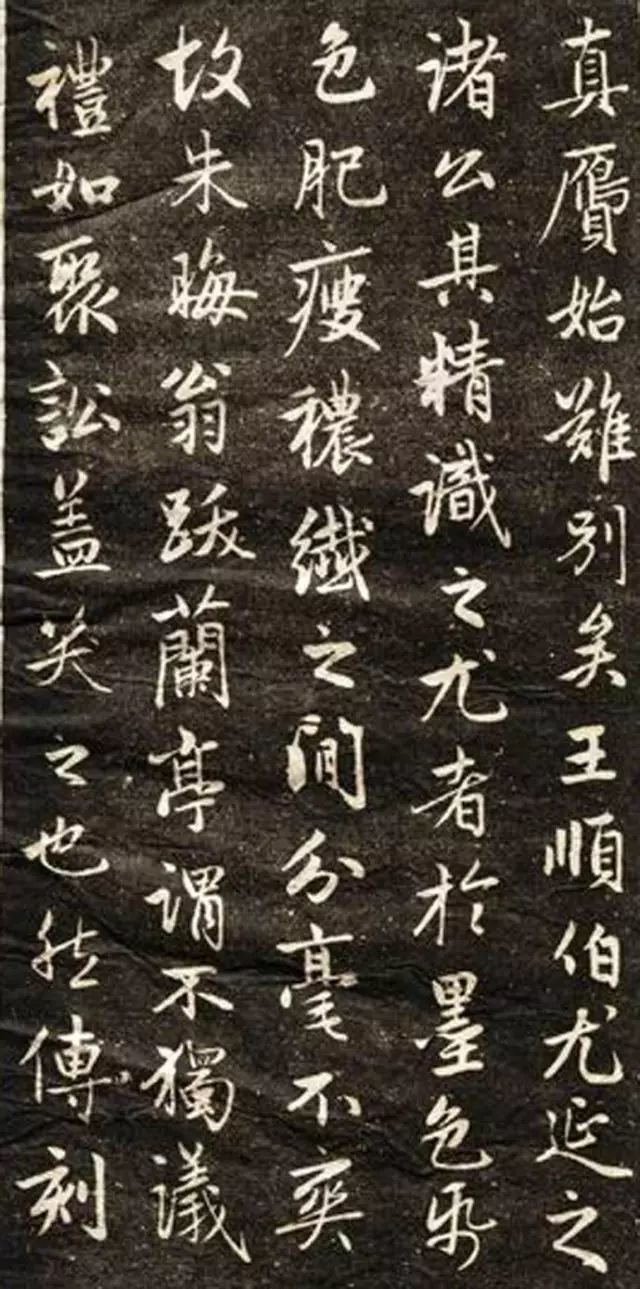 真贗始難別矣王順伯尤延之
諸公其精識之尤者於墨色紙
色肥瘦穠纖之間分毫不爽
故朱晦翁跋蘭亭謂不獨議
禮如聚訟蓋笑之也然傳刻